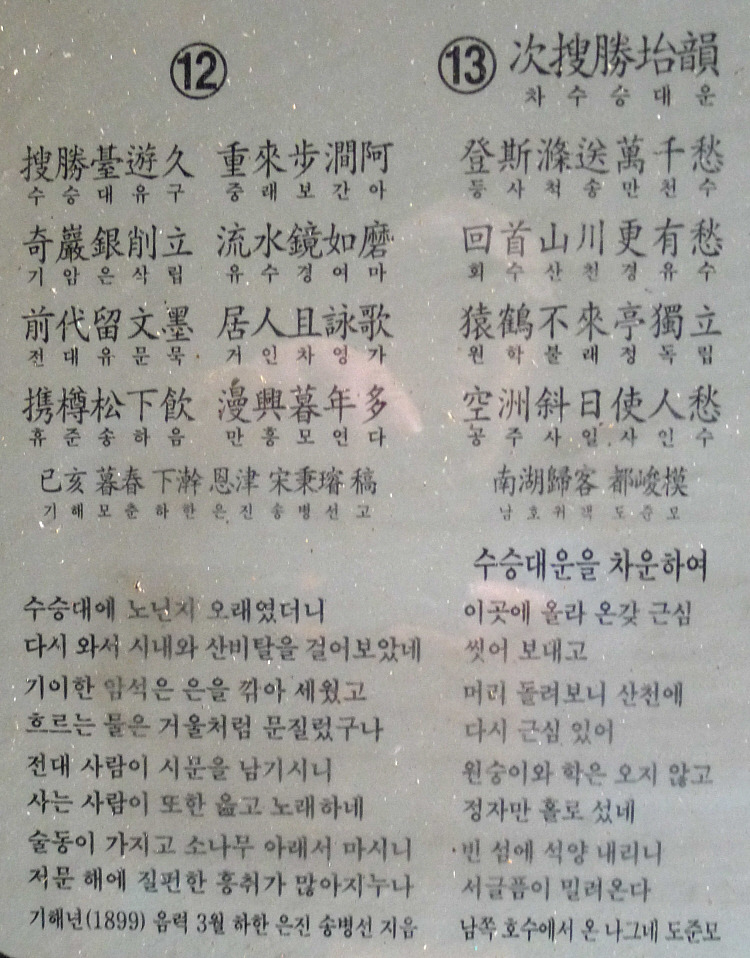 ⑫
搜勝臺遊久 重來步澗阿
수승대유구 중래보간아
奇巖銀削立 流水鏡如磨
기암은삭립 유수경여마
前代留文墨 居人且詠歌
전대유문묵 거인차영가
携樽松下飮 漫興暮年多
휴준송하음 만흥모연다
己亥 暮春 下澣 恩津 宋秉璿 稿
기해모춘하한은진송병선고
수승대에 노닌지 오래였더니
다시 와서 시내와 산비탈을 걸어보았네
기이한 암석은 은을 깎아 세웠고
흐르는 물은 거울처럼 문질렀구나
전대 사람이 시문을 남기시니
사는 사람이 또한 읊고 노래하네
술동이 가지고 소나무 아래서 마시니
저문 해에 질펀한 흥취가 많아지누나
기해년(1899) 음력 3월 하한 은진 송병선 지음
⑬ 次搜勝坮韻
차수승대운
登斯滌送萬千愁
등사척송만천수
回首山川更有愁
회수산천경유수
猿鶴不來亭獨立
원학불래정독립
空洲斜日使人愁
공주사일사인수
南湖歸客 都峻模
남호귀객 도준모
수승대운을 차운하여
이곳에 올라 온갖 근심
씻어 보내고
머리 돌려보니 산천에
다시 근심 있어
원숭이와 학은 오지 않고
정자만 홀로 섰네
빈 섬에 석양 내리니
서글픔이 밀려온다
남쪽 호수에서 온 나그네 도준모